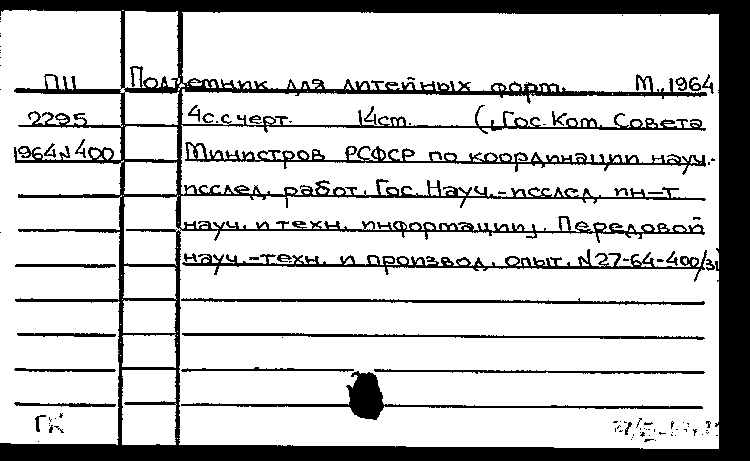 П11 Подъемник для литейных форм. М., 1964
2295 4с. с черт. 14см. (Гос. Ком. Совета
1964 N 400 Министров РСФСР по координации науч.-
исслед. работ. Гос. Науч.-исслед. ин-т
науч. и техн. информации). Передовой
науч.-техн. и производ. опыт. N 27-64-400/31
ГК